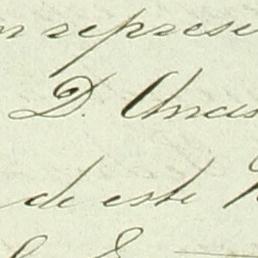 n represe
D. Anas
de este